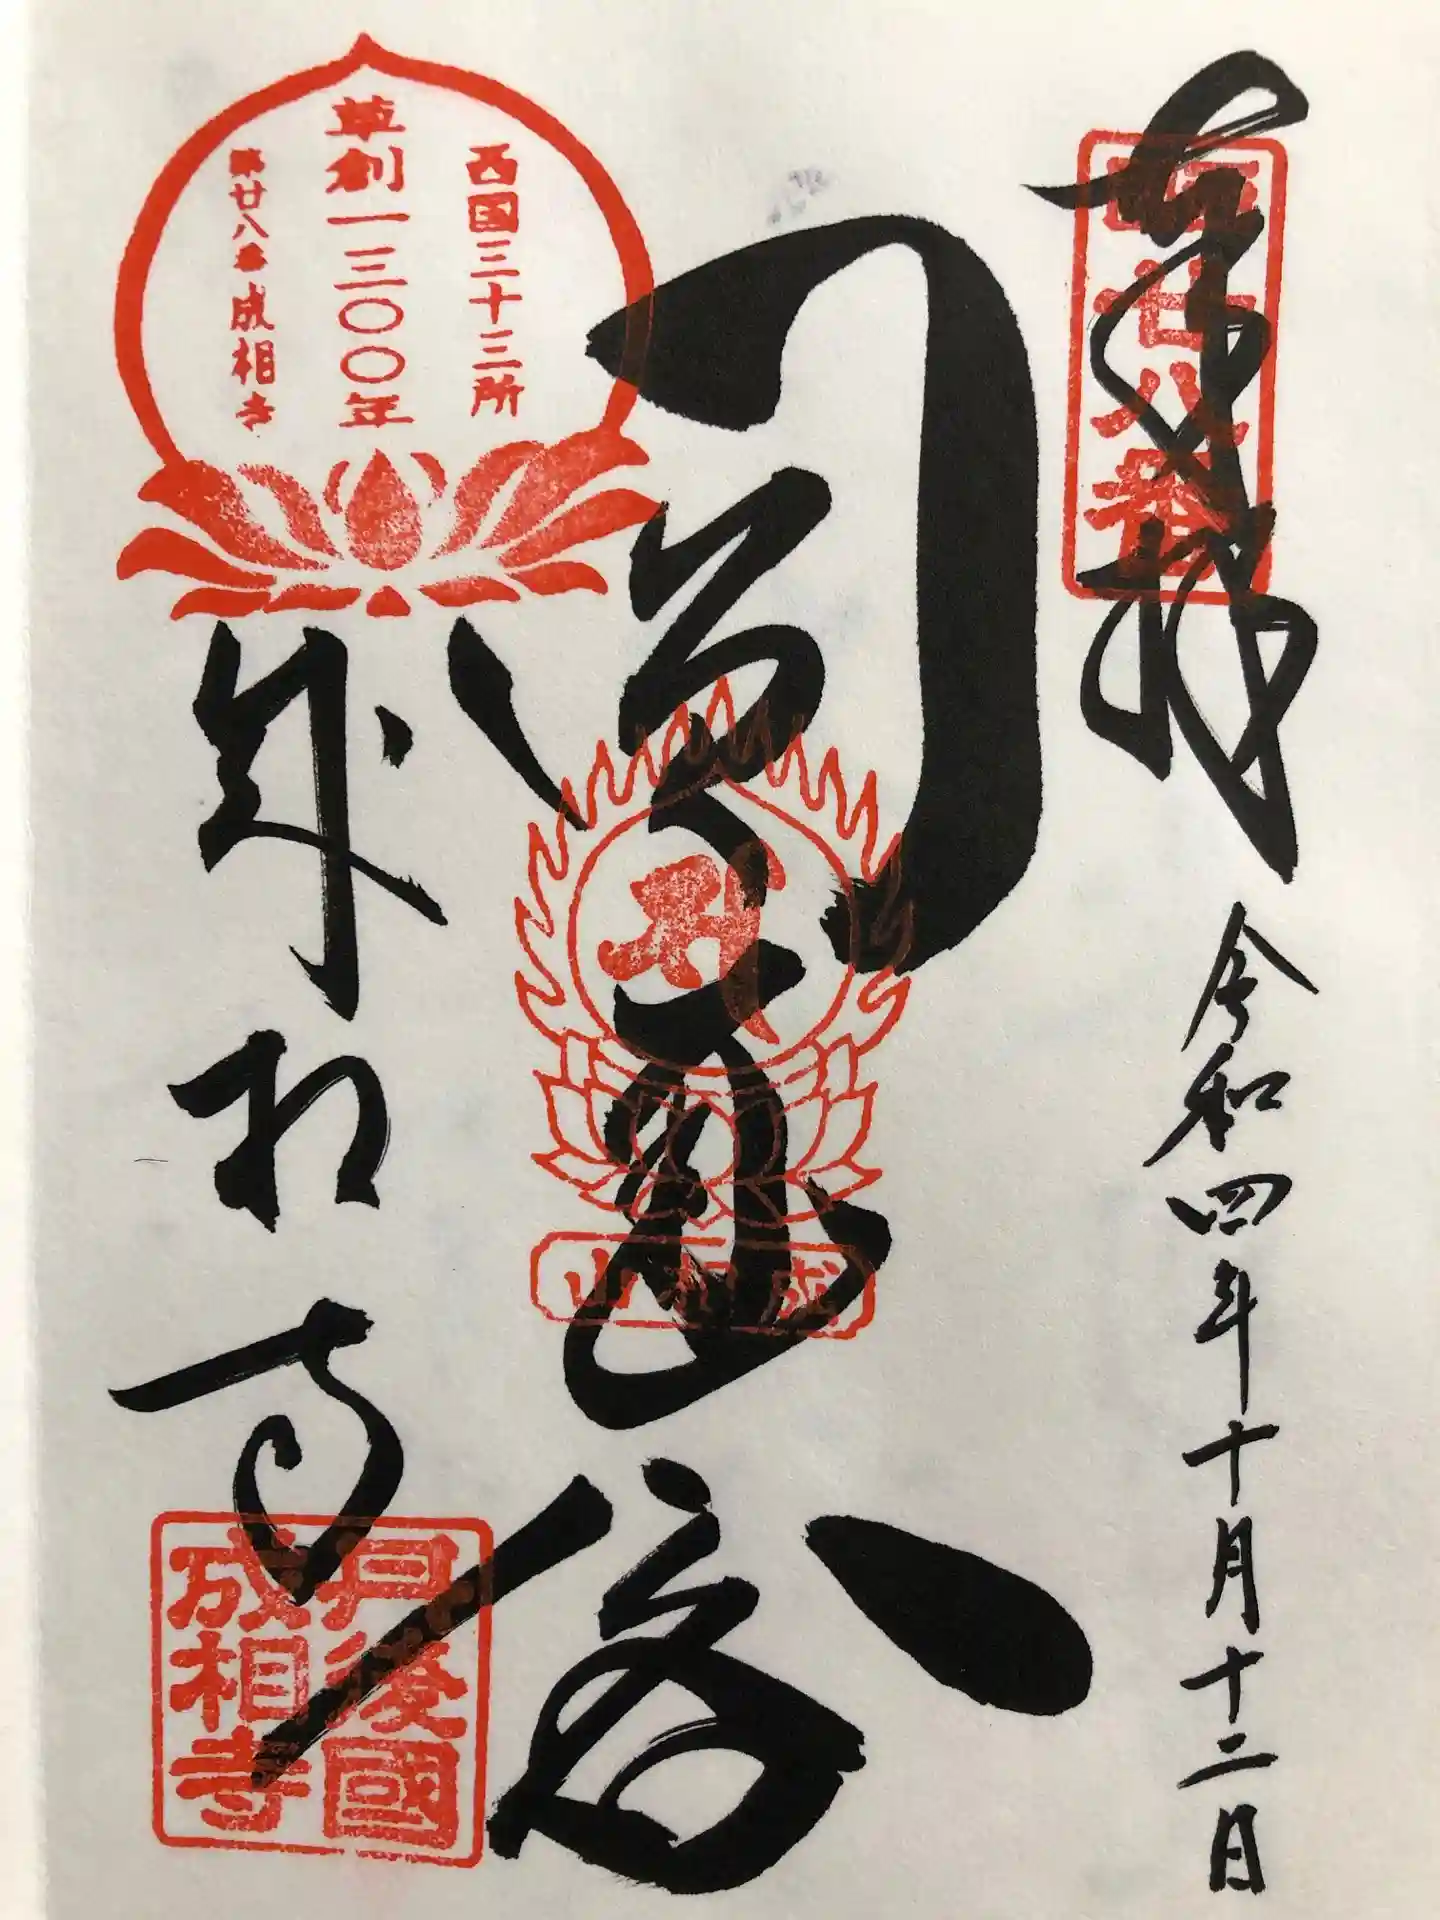 奉拝
西國廿八番
令和四年十月十二日
成相山
西国三十三所
草創一三〇〇年
第廿八番 成相寺
成相寺
丹後國
成相寺